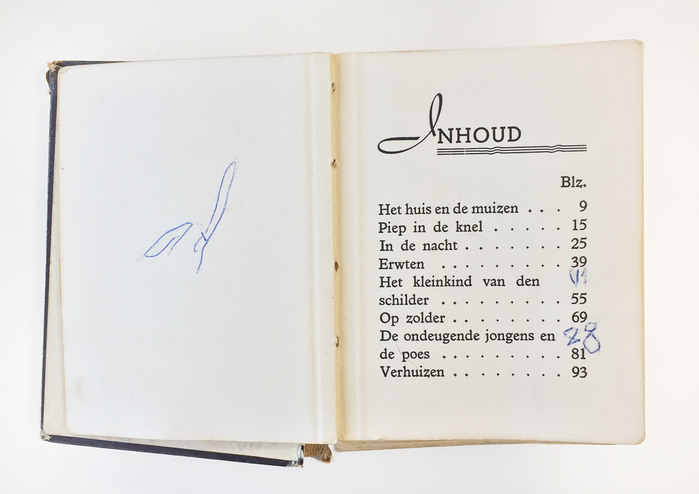 INHOUD
Blz.
Het huis en de muizen . . . 9
Piep in de knel . . . . . . 15
In de nacht . . . . . . . . . 25
Erwten . . . . . . . . . . 39
Het kleinkind van den
schilder . . . . . . . . . . 55
Op zolder . . . . . . . . . 69
De ondeugende jongens en
de poes . . . . . . . . . . 81
Verhuizen . . . . . . . . . 93